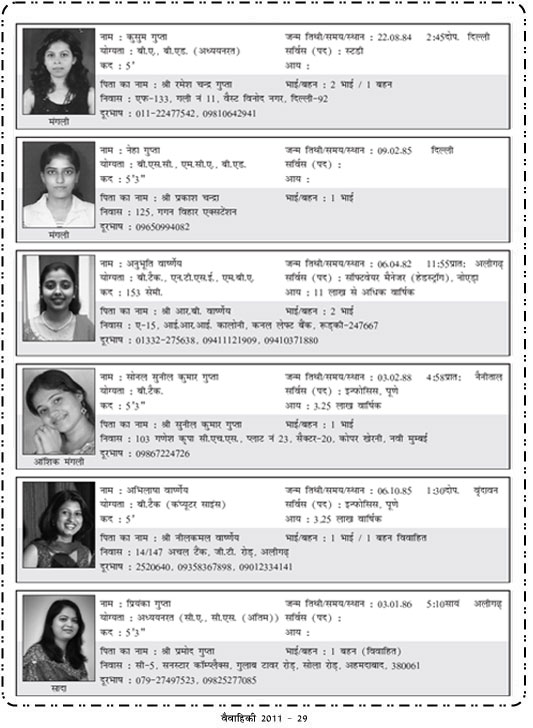 नाम : कुसुम गुप्ता जन्म तिथी/समय/स्थान : 22.08.84 2:45दोप. दिल्ली
योग्यता : बी.ए., बी.एड. (अध्ययनरत) सर्विस (पद) : स्टडी
कद : 5' आय :
पिता का नाम : श्री रमेश चन्द्र गुप्ता भाई/बहन : 2 भाई / 1 बहन
निवास : एफ-133, गली नं 11, वैस्ट विनोद नगर, दिल्ली-92
दूरभाष : 011-22477542, 09810642941
मंगली
नाम : नेहा गुप्ता जन्म तिथी/समय/स्थान : 09.02.85 दिल्ली
योग्यता : बी.एस.सी., एम.सी.ए., बी.एड. सर्विस (पद) :
कद : 5'3" आय :
पिता का नाम : श्री प्रकाश चन्द्रा भाई/बहन : 1 भाई
निवास : 125, गगन विहार एक्सटेंशन
दूरभाष : 09650994082
मंगली
नाम : अनुभूति वार्ष्णेय जन्म तिथी/समय/स्थान : 06.04.82 11:55प्रात: अलीगढ़
योग्यता : बी.टैक., एन.टी.एस.ई., एम.बी.ए. सर्विस (पद) : सॉफ्टवेयर मैनेजर (हेडस्ट्रॉंग), नोएडा
कद : 153 सेमी. आय : 11 लाख से अधिक वार्षिक
पिता का नाम : श्री आर.बी. वार्ष्णेय भाई/बहन : 2 भाई
निवास : ए-15, आई.आर.आई. कालोनी, कनल लेफ्ट बैंक, रूड़की-247667
दूरभाष : 01332-275638, 09411121909, 09410371880
नाम : सोनल सुनील कुमार गुप्ता जन्म तिथी/समय/स्थान : 03.02.88 4:58प्रात: नैनीताल
योग्यता : बी.टैक. सर्विस (पद) : इन्फोसिस, पूणे
कद : 5'3" आय : 3.25 लाख वार्षिक
पिता का नाम : श्री सुनील कुमार गुप्ता भाई/बहन : 1 भाई
निवास : 103 गणेश कृपा सी.एच.एस., प्लाट नं 23, सैक्टर-20, कोपर खेरनी, नवी मुम्बई
दूरभाष : 09867224726
आंशिक मंगली
नाम : अभिलाषा वार्ष्णेय जन्म तिथी/समय/स्थान : 06.10.85 1:30दोप. वृंदावन
योग्यता : बी.टैक (कंप्यूटर साइंस) सर्विस (पद) : इन्फोसिस, पूणे
कद : 5' आय : 3.25 लाख वार्षिक
पिता का नाम : श्री नीलकमल वार्ष्णेय भाई/बहन : 1 भाई / 1 बहन विवाहित
निवास : 14/147 अचल टैंक, जी.टी. रोड़, अलीगढ़
दूरभाष : 2520640, 09358367898, 09012334141
नाम : प्रियंका गुप्ता जन्म तिथी/समय/स्थान : 03.01.86 5:10सायं अलीगढ़
योग्यता : अध्ययनरत (सी.ए., सी.एस. (अंतिम)) सर्विस (पद) :
कद : 5'3" आय :
पिता का नाम : श्री प्रमोद गुप्ता भाई/बहन : 1 बहन (विवाहित)
निवास : सी-5, सनस्टार कॉम्प्लैक्स, गुलाब टावर रोड़, सोला रोड़, अहमदाबाद, 380061
दूरभाष : 079-27497523, 09825277085
सादा
वैवाहिकी 2011 - 29